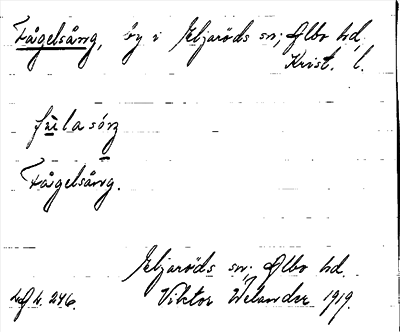 Fågelsång, by i Eljaröds sn; Albo hd,
Krist. l.
fúlasóŋ
Fågelsång.
Eljaröds sn; Albo hd.
Viktor Welander 1919.